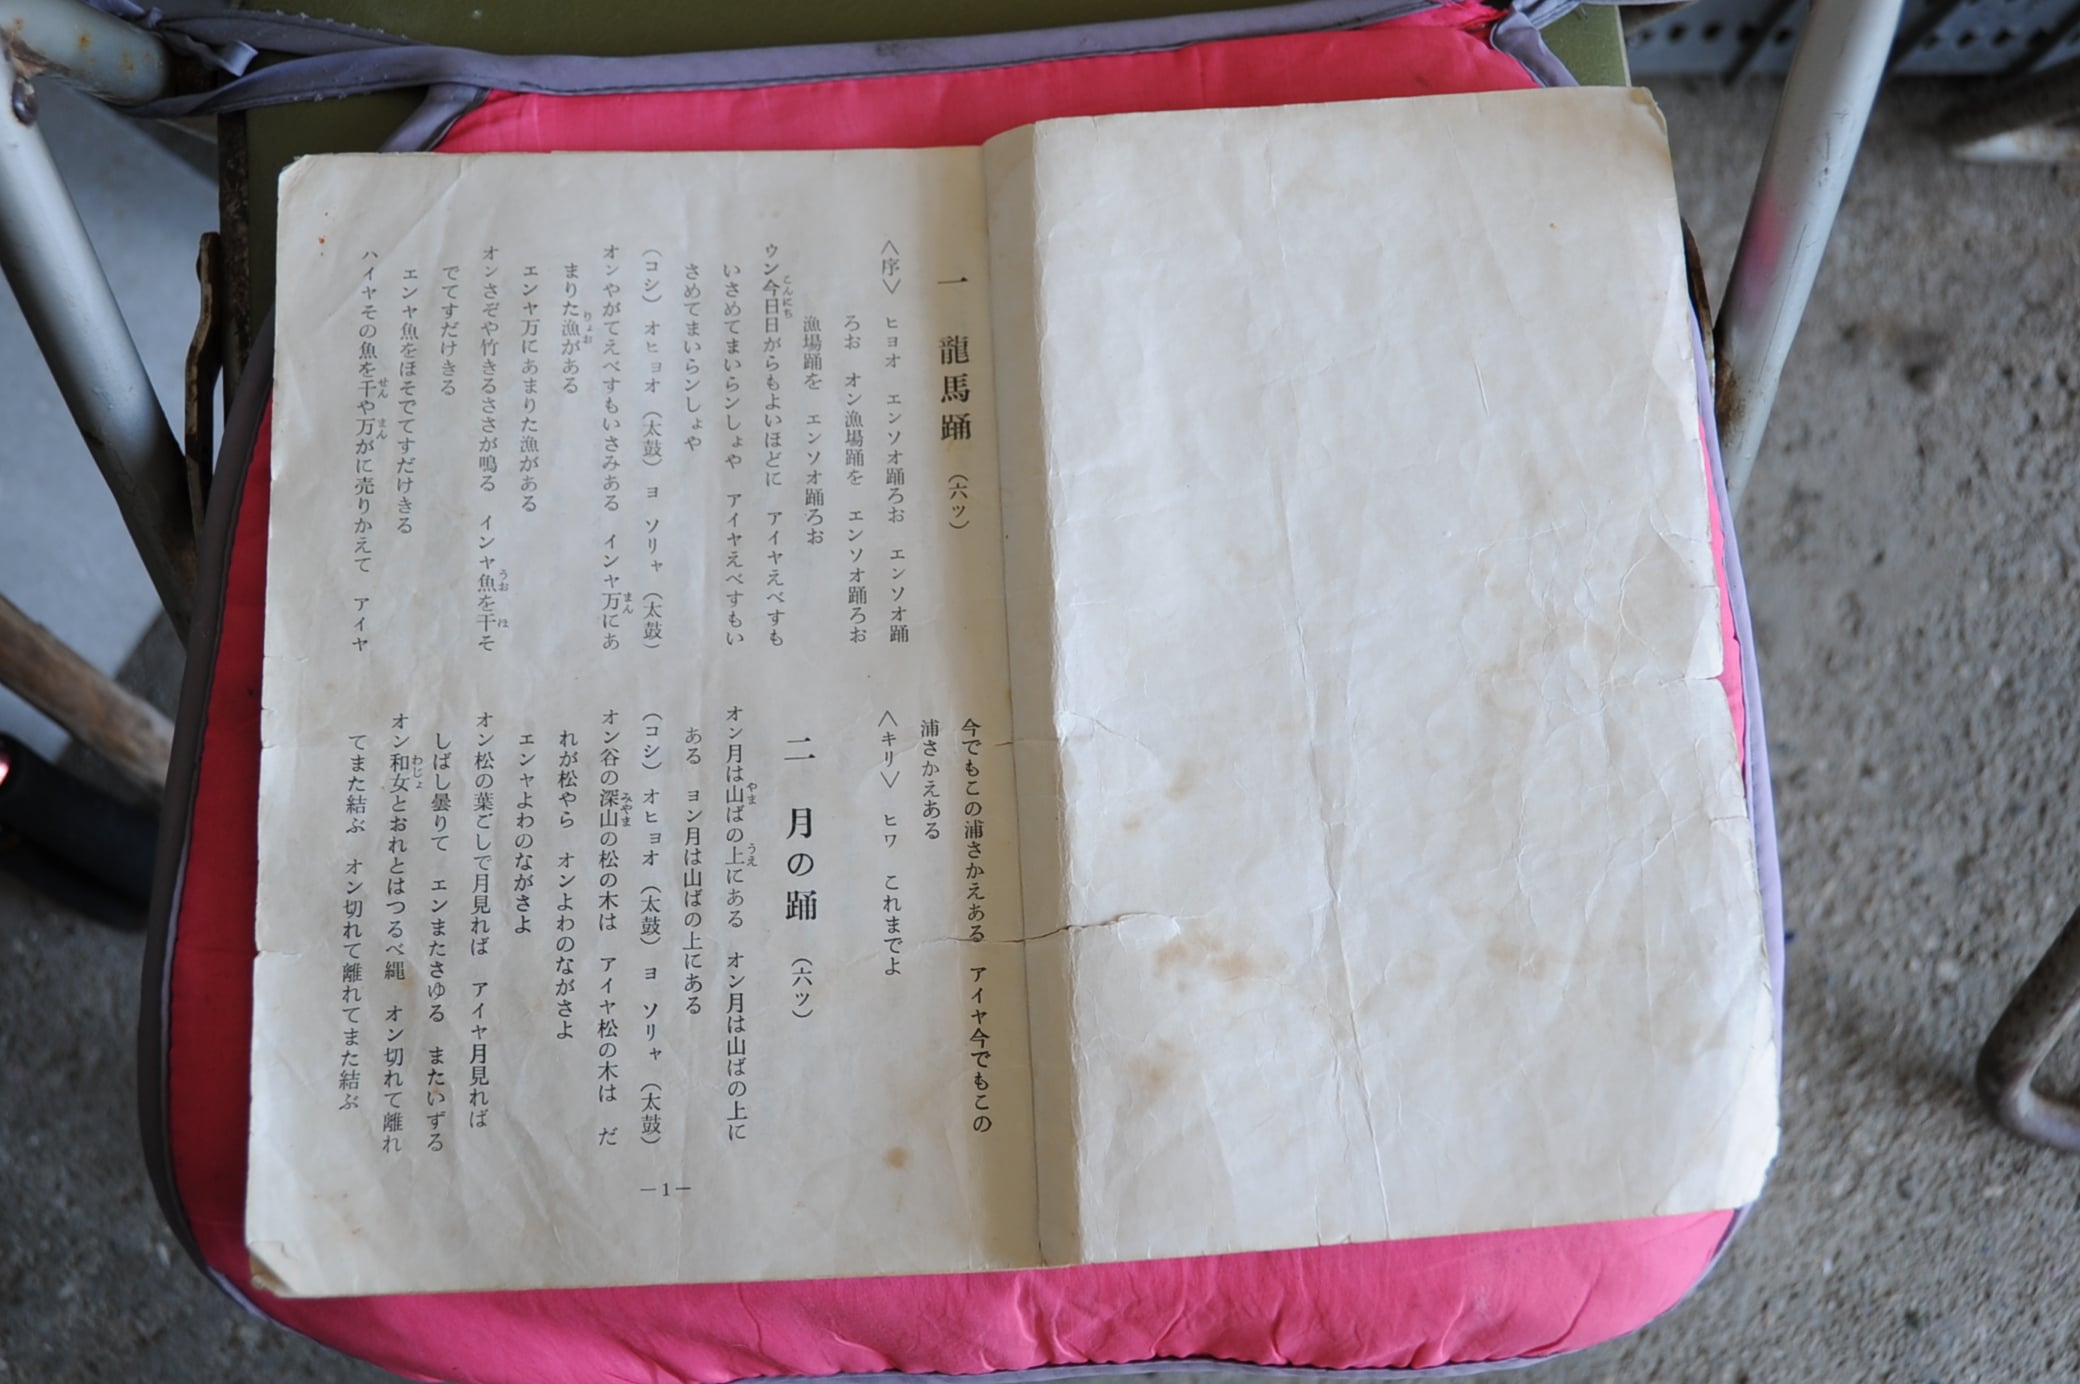 一 龍馬踊 (六ッ)
〈序〉 ヒヨオ エンソオ踊ろお エンソオ踊
ろお オン漁場踊を エンソオ踊ろお
漁場踊を エンソオ踊ろお
ウン今日日がらもよいほどに アイヤえべすも
こんにち
いさめてまいらンしょや アイヤえべすもい
さめてまいらンしょや
(コシ) オヒョオ (太鼓) ヨ ソリャ (太鼓)
オンやがてえべすもいさみある インヤ万にあ
まん
まりた漁がある
りょお
エンヤ万にあまりた漁がある
オンさぞや竹きるささが鳴る インヤ魚を干そ
うお ほ
でてすだけきる
エンヤ魚をほそでてすだけきる
ハイヤその魚を千や万がに売りかえて アイヤ
せん まん
今でもこの浦さかえある アイヤ今でもこの
浦さかえある
〈キリ〉 ヒワ これまでよ
二 月の踊 (六ッ)
オン月は山ばの上にある オン月は山ばの上に
やま うえ
ある ヨン月は山ばの上にある
(コシ) オヒョオ (太鼓) ヨ ソリャ (太鼓)
オン谷の深山の松の木は アイヤ松の木は だ
みやま
れが松やら オンよわのながさよ
エンヤよわのながさよ
オン松の葉ごしで月見れば アイヤ月見れば
しばし曇りて エンまたさゆる またいずる
オン和女とおれとはつるべ縄 オン切れて離れ
わじょ
てまた結ぶ オン切れて離れてまた結ぶ
―1―